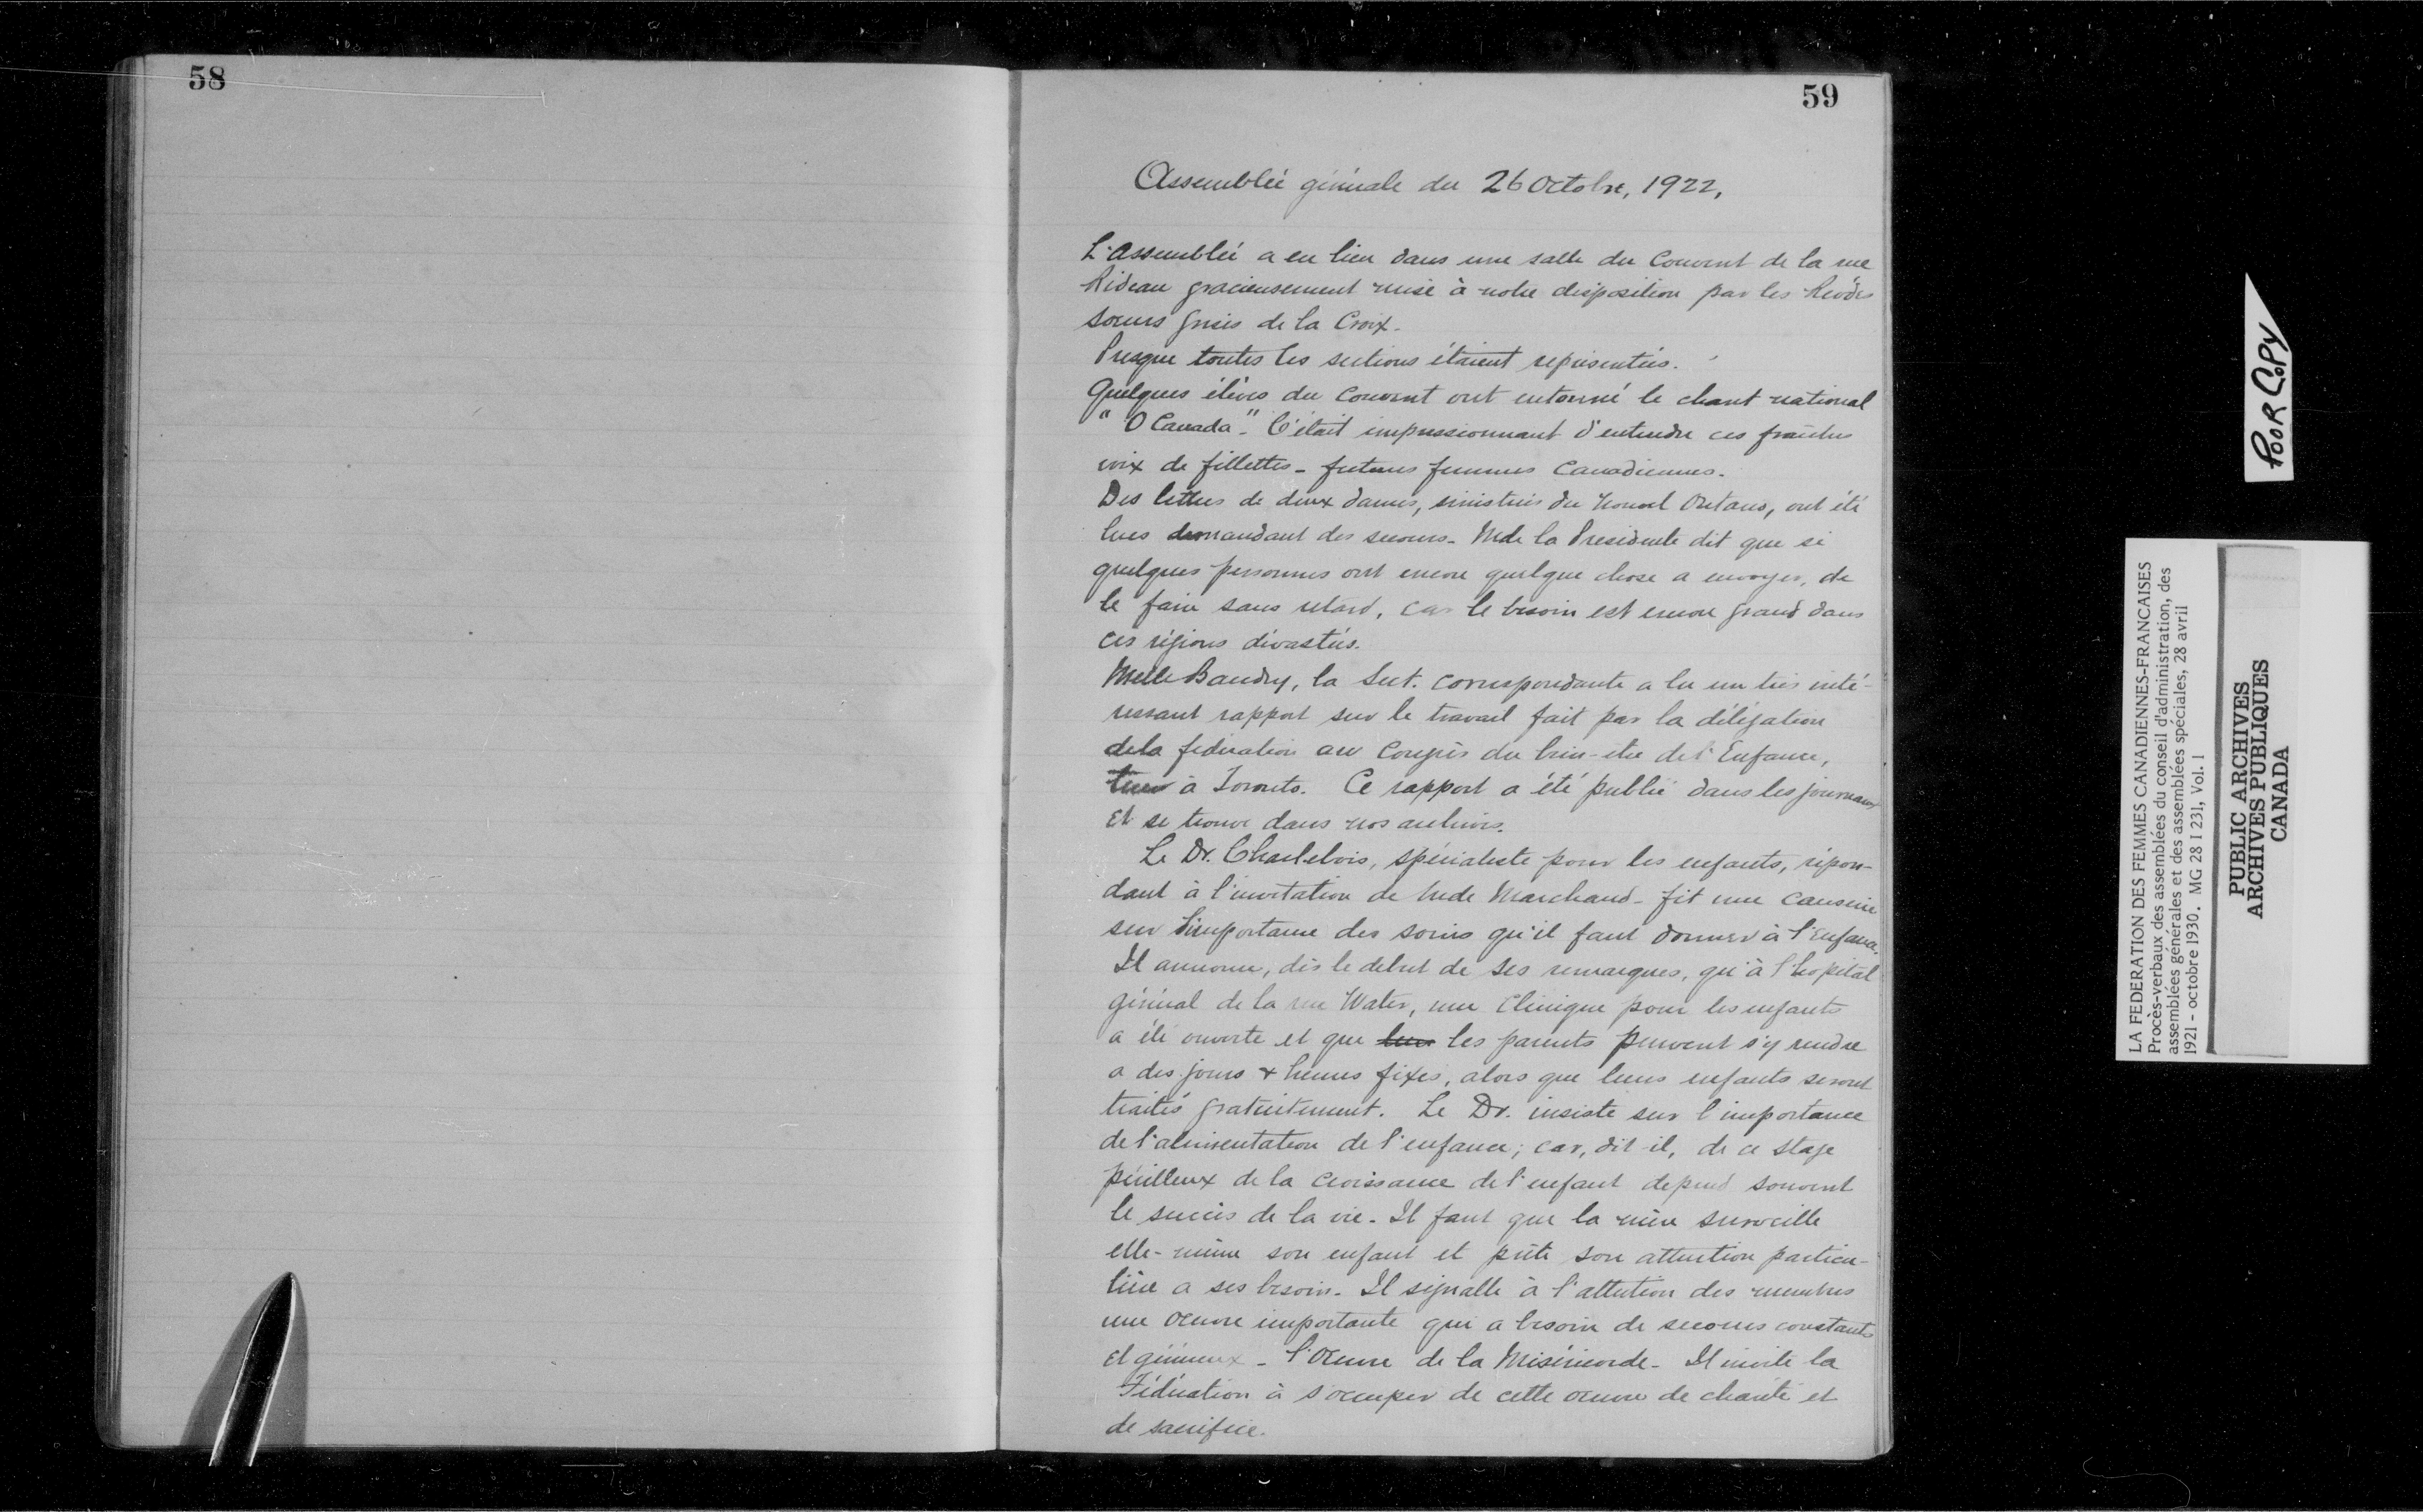 58
59
Assemblée générale du 26 Octobre, 1922,
L'Assemblée a eu lieu dans une salle du Couvent de la rue
Rideau gracieusement mise à notre disposition par les Révdes
soeurs grises de la Croix.
Presque toutes les sections étaient représentées.
Quelques élèves du Couvent ont entonné le chant national
"O Canada". C'était impressionnant d'entendre ces fraîches
voix de fillettes - futures femmes Canadiennes.
Des lettres de deux dames, sinistrées du Nouvel Ontario, ont été
lues demandant des secours. Mde la Presidente dit que si
quelques personnes ont encore quelque chose a envoyer, de
le faire sans retard, car le besoin est encore grand dans
ces régions dévastées.
Melle Baudry, la Sect. correspondante a lu un très inté-
ressant rapport sur le travail fait par la délégation
de la fédération au Congrès du bien-etre de l'Enfance,
tenu à Toronto. Ce rapport a été publié dans les journaux
et se trouve dans nos archives.
Le Dr. Charlebois, spécialiste pour les enfants, répon-
dant à l'invitation de Mde Marchand - fit une causerie
sur l'importance des soins qu'il faut donner à l'enfance.
Il annonce, dès le debut de ses remarques, qu'à l'hopital
général de la rue Water, une Clinique pour les enfants
a été ouverte et que les parents peuvent s'y rendre
a des jours & heures fixes, alors que leurs enfants seront
traités gratuitement. Le Dr. insiste sur l'importance
de l'alimentation de l'enfance; car, dit-il, de ce stage
périlleux de la croissance de l'enfant depend souvent
le succès de la vie. Il faut que la mère surveille
elle-même son enfant et prête son attention particu-
lière a ses besoins. Il signalle à l'attention des membres
une oeuvre importante qui a besoin de secours constants
et généreux - l'Oeuvre de la Miséricorde. Il invite la
Fédération à s'occuper de cette oeuvre de charité et
de sacrifice.
POOR COPY
LA FEDERATION DES FEMMES CANADIENNES-FRANCAISES
Procès-verbaux des assemblées du conseil d'administration, des
assemblées générales et des assemblées spéciales, 28 avril
1921 - octobre 1930. MG 28 I 231, Vol. 1
PUBLIC ARCHIVES
ARCHIVES PUBLIQUES
CANADA